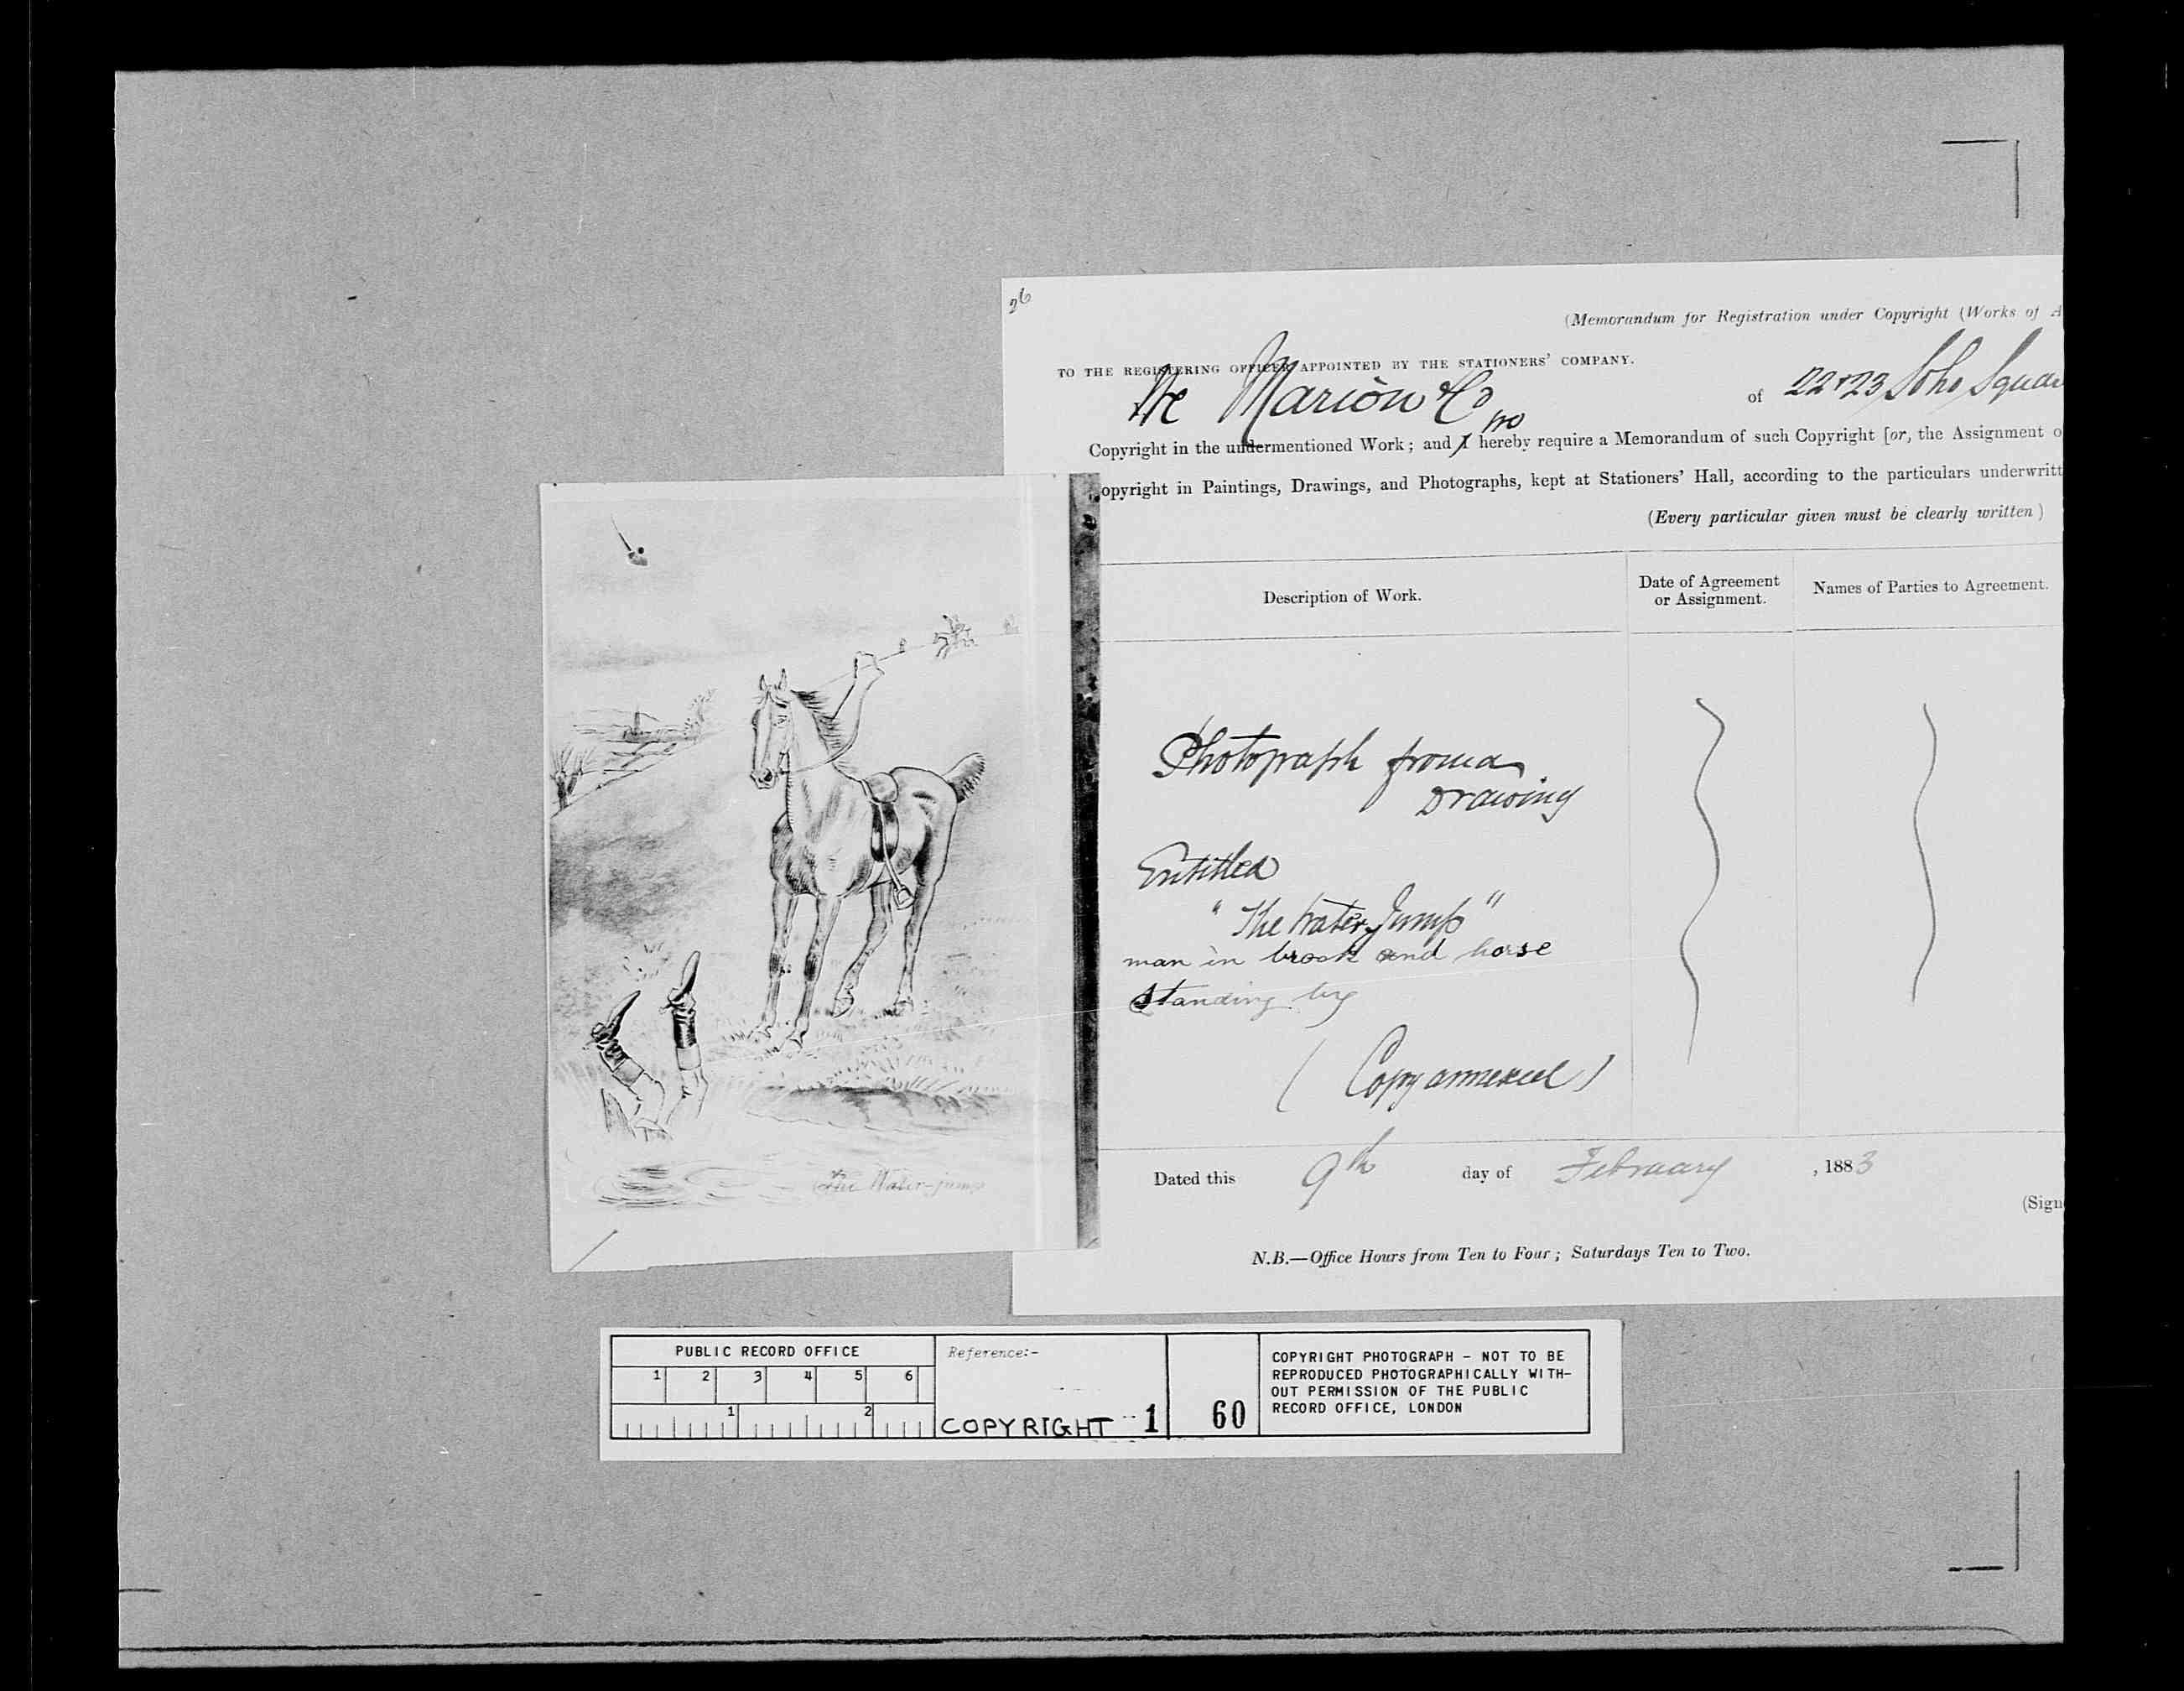 26
(Memorandum for Registration under Copyright (Works of A
TO THE REGISTERING OFFICER APPOINTED BY THE STATIONERS' COMPANY.
We Marion & Co of 22 & 23 Soho Squar
Copyright in the undermentioned Work; and I we hereby require a Memorandum of such Copyright [or, the Assignment o
opyright in Paintings, Drawings, and Photographs, kept at Stationers' Hall, according to the particulars underwritt
(Every particular given must be clearly written)
Description of Work.
Date of Agreement
or Assignment.
Names of Parties to Agreement.
Photograph from a
Drawing
Entitled
"The Water Jump"
man in brook and horse
standing by
(Copy annexed)
Dated this 9th day of February, 1883
(Sign
N.B.—Office Hours from Ten to Four; Saturdays Ten to Two.
The Water-jump
PUBLIC RECORD OFFICE
1 2 3 4 5 6
1 2
Reference:-
COPYRIGHT 1
60
COPYRIGHT PHOTOGRAPH - NOT TO BE
REPRODUCED PHOTOGRAPHICALLY WITH-
OUT PERMISSION OF THE PUBLIC
RECORD OFFICE, LONDON